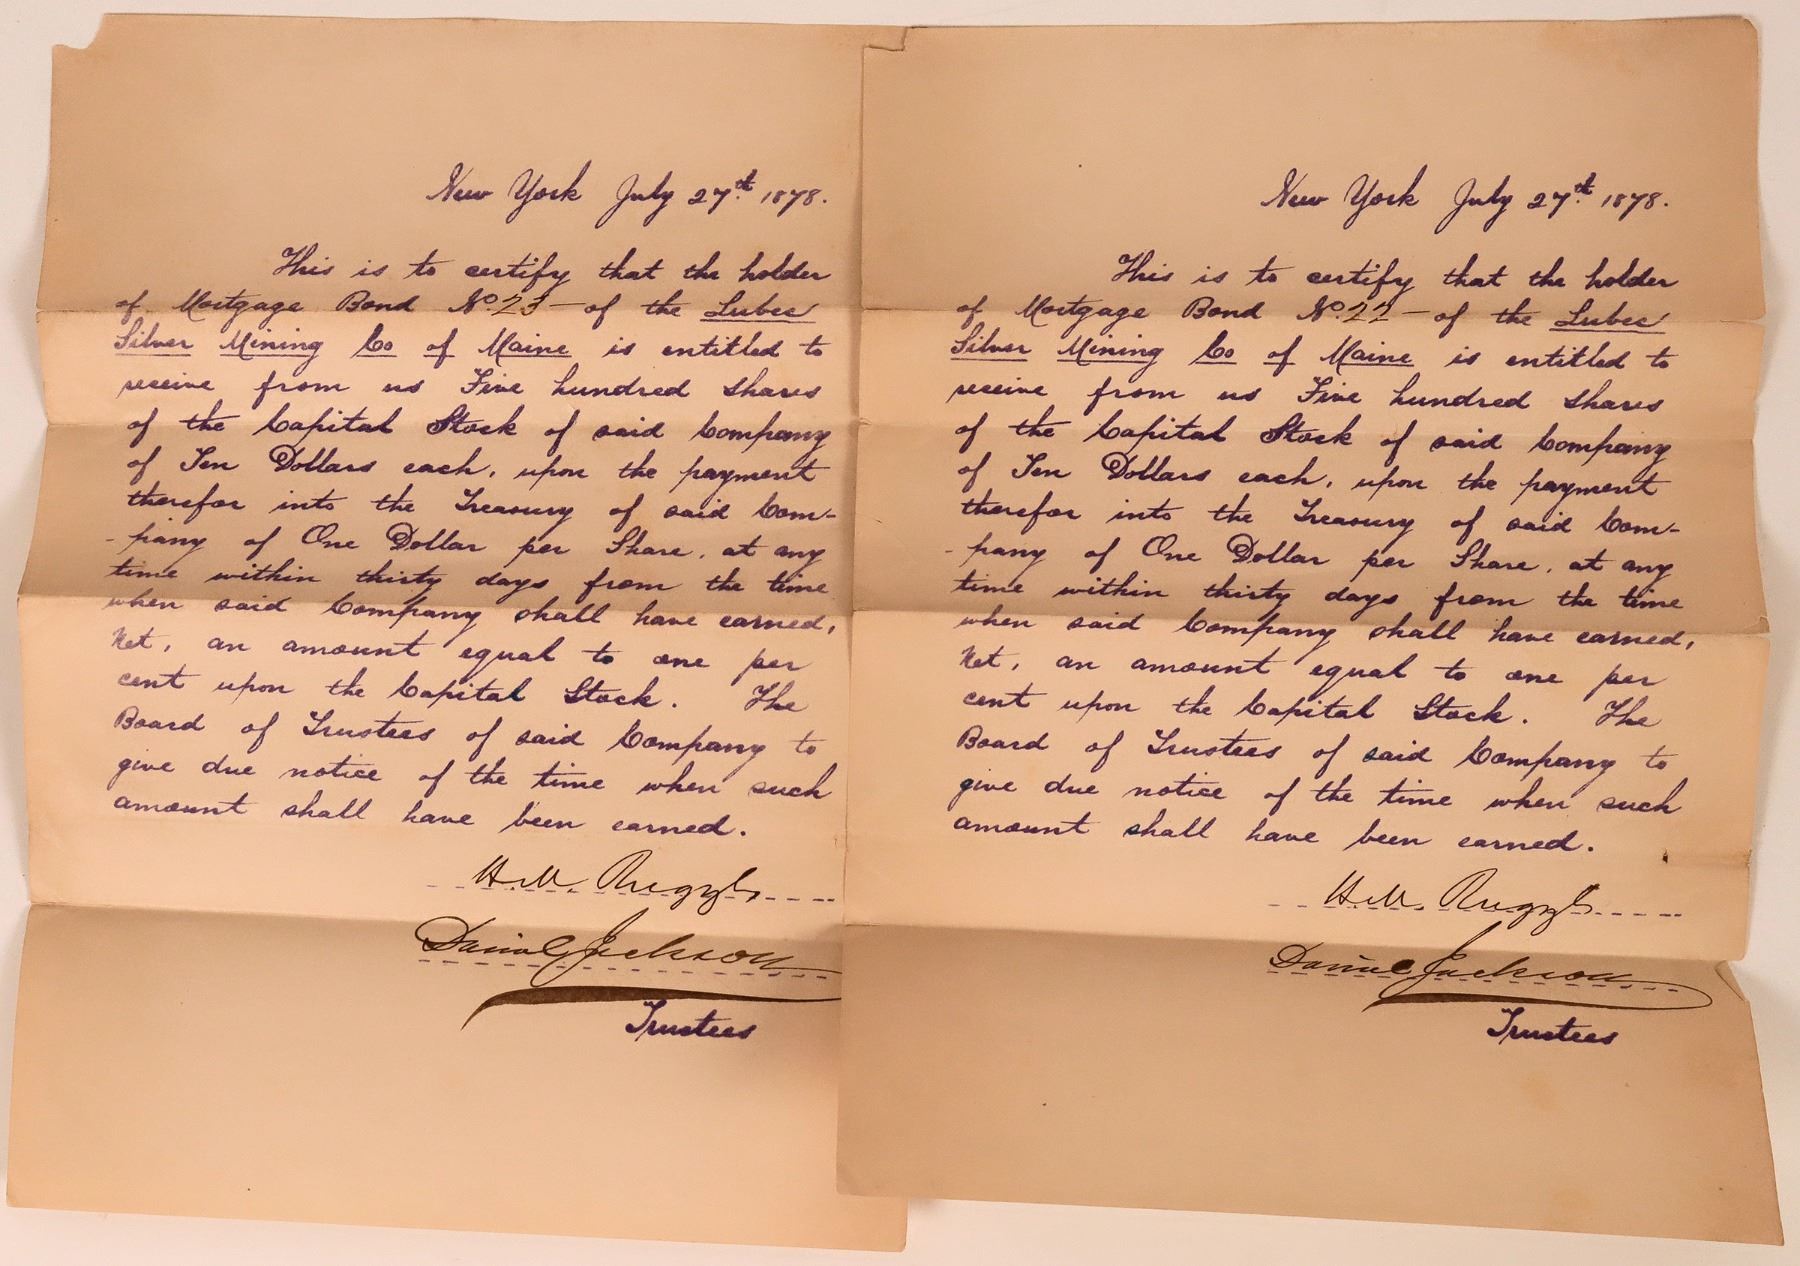 New York July 27th. 1878.
This is to certify that the holder
of Mortgage Bond No. 23 - of the Lubec
Silver Mining Co of Maine is entitled to
receive from us Five hundred shares
of the Capital Stock of said Company
of Ten Dollars each, upon the payment
therefor into the Treasury of said Com-
-pany of One Dollar per Share, at any
time within thirty days from the time
when said Company shall have earned,
Net, an amount equal to one per
cent upon the Capital Stock. The
Board of Trustees of said Company to
give due notice of the time when such
amount shall have been earned.
H. M. Ruggles
Daniel Jackson
Trustees
New York July 27th. 1878.
This is to certify that the holder
of Mortgage Bond No. 22 - of the Lubec
Silver Mining Co of Maine is entitled to
receive from us Five hundred shares
of the Capital Stock of said Company
of Ten Dollars each, upon the payment
therefor into the Treasury of said Com-
-pany of One Dollar per Share, at any
time within thirty days from the time
when said Company shall have earned,
Net, an amount equal to one per
cent upon the Capital Stock. The
Board of Trustees of said Company to
give due notice of the time when such
amount shall have been earned.
H. M. Ruggles
Daniel Jackson
Trustees